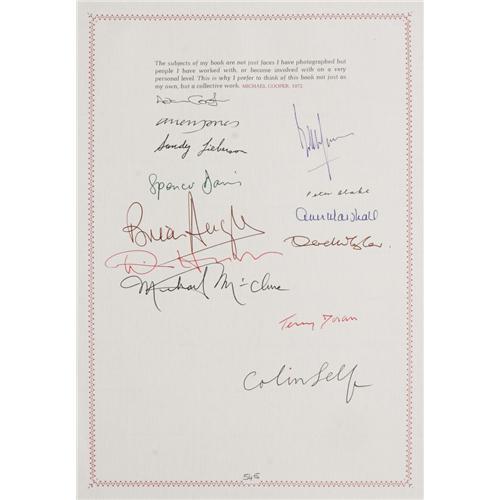 The subjects of my book are not just faces I have photographed but
people I have worked with, or become involved with on a very
personal level. This is why I prefer to think of this book not just as
my own, but a collective work. MICHAEL COOPER. 1972
Allen Jones
Sandy Lieberson
Spencer Davis
Peter Blake
Ann Marshall
Brian Auger
Derek Taylor
Michael McClure
Terry Doran
Colin Self
545